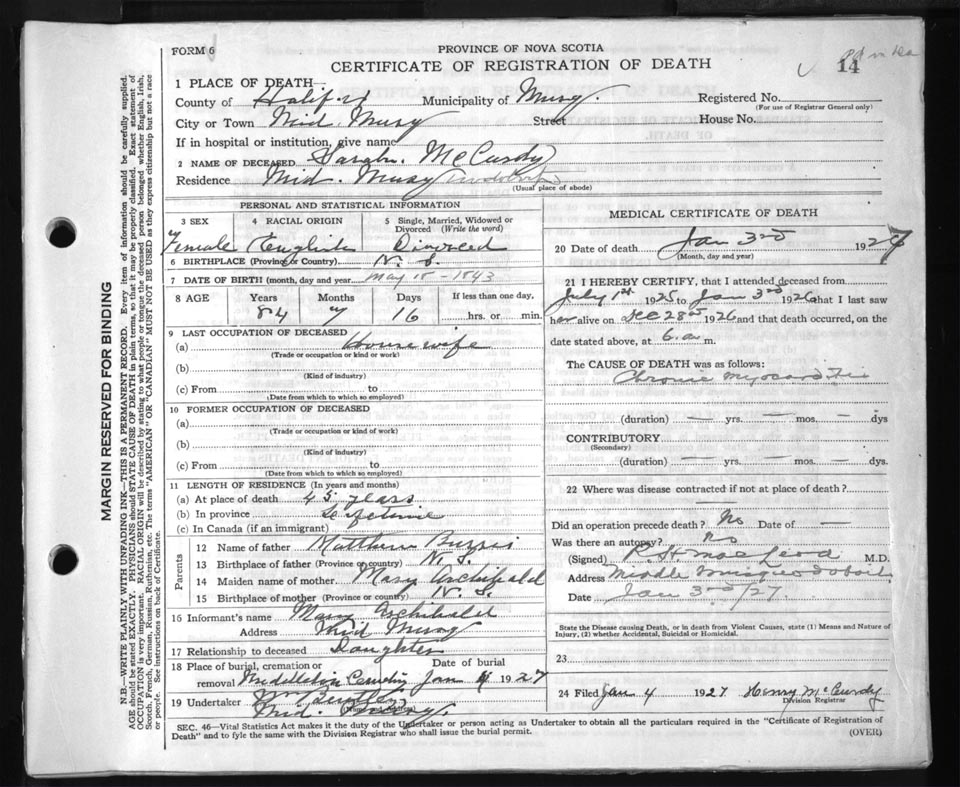 FORM 6
PROVINCE OF NOVA SCOTIA
CERTIFICATE OF REGISTRATION OF DEATH
14
1 PLACE OF DEATH—
County of Halifax Municipality of Musq. Registered No.
(For use of Registrar General only)
City or Town Mid. Musq Street House No.
If in hospital or institution, give name
2 NAME OF DECEASED Sarah. McCurdy
Residence Mid. Musq
(Usual place of abode)
PERSONAL AND STATISTICAL INFORMATION
3 SEX 4 RACIAL ORIGIN 5 Single, Married, Widowed or Divorced (Write the word)
Female English Divorced
6 BIRTHPLACE (Province or Country) N. S.
7 DATE OF BIRTH (month, day and year) May 18 - 1843
8 AGE Years Months Days If less than one day,
84 7 16 hrs. or min.
9 LAST OCCUPATION OF DECEASED
(a) House wife
(Trade or occupation or kind of work)
(b)
(Kind of industry)
(c) From to
(Date from which to which so employed)
10 FORMER OCCUPATION OF DECEASED
(a)
(Trade or occupation or kind of work)
(b)
(Kind of industry)
(c) From to
(Date from which to which so employed)
11 LENGTH OF RESIDENCE (In years and months)
(a) At place of death 45 years
(b) In province Lifetime
(c) In Canada (if an immigrant)
Parents
12 Name of father Matthew
13 Birthplace of father (Province or country) N. S.
14 Maiden name of mother Mary Archibald
15 Birthplace of mother (Province or country) N. S.
16 Informant's name Mary Archibald
Address Mid Musq
17 Relationship to deceased Daughter
18 Place of burial, cremation or removal Date of burial
Jan 4 1927
19 Undertaker
Mid.
(Name and address)
MEDICAL CERTIFICATE OF DEATH
20 Date of death Jan 3rd 1927
(Month, day and year)
21 I HEREBY CERTIFY, that I attended deceased from
July 1st 1925 to Jan 3rd 1926 that I last saw
her alive on Dec 28th 1926 and that death occurred, on the
date stated above, at 6. a. m.
The CAUSE OF DEATH was as follows:
Chronic Myocarditis
(duration) — yrs. — mos. — dys
CONTRIBUTORY
(Secondary)
(duration) — yrs. — mos. — dys.
22 Where was disease contracted if not at place of death?
Did an operation precede death? No Date of —
Was there an autopsy? No
(Signed) R. H. MacLeod M.D.
Address Middle Musquodoboit
Date Jan 3rd/27.
State the Disease causing Death, or in death from Violent Causes, state (1) Means and Nature of
Injury, (2) whether Accidental, Suicidal or Homicidal.
23
24 Filed Jan 4 1927 Henry McCurdy
Division Registrar
SEC. 46—Vital Statistics Act makes it the duty of the Undertaker or person acting as Undertaker to obtain all the particulars required in the "Certificate of Registration of
Death" and to fyle the same with the Division Registrar who shall issue the burial permit.
(OVER)
MARGIN RESERVED FOR BINDING
N.B.—WRITE PLAINLY WITH UNFADING INK—THIS IS A PERMANENT RECORD. Every item of information should be carefully supplied.
AGE should be stated EXACTLY. PHYSICIANS should STATE CAUSE OF DEATH in plain terms, so that it may be properly classified. Exact statement of
OCCUPATION is very important. RACIAL ORIGIN will be described by stating to what people or tongue the deceased person belonged whether English, Irish,
Scotch, French, German, Russian, Ruthenian, etc. The terms "AMERICAN" OR "CANADIAN" MUST NOT BE USED as they express citizenship but not a race
or people. See instructions on back of Certificate.